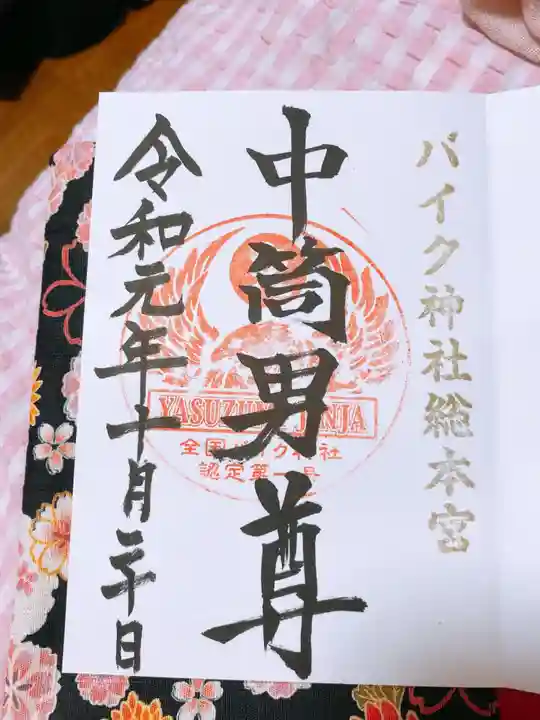 バイク神社総本宮
中筒男尊
YASUZUMI JINJA
全国バイク神社
認定第一号
令和元年十月二十日